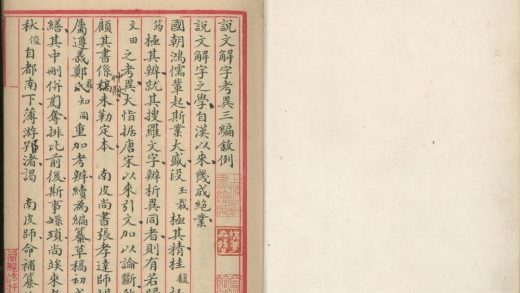 說文解字考異三編敘例
說文解字之學自漢以來幾成絕業
國朝鴻儒輩起斯業大盛段玉裁極其精桂馥
筠極其辨就其搜羅文字辨析異同者則有若
文田之考異大恉据唐宋以來引文加以論斷
顧其書係稿未勒定本 南皮尚書張孝達師
屬遵義鄭知同重加考辨續為編纂草稿初成
繕其中刪併奪排比前後斯事瑣尚竢來者
秋俊自都南下薄游鄂渚謁 南皮師命補纂